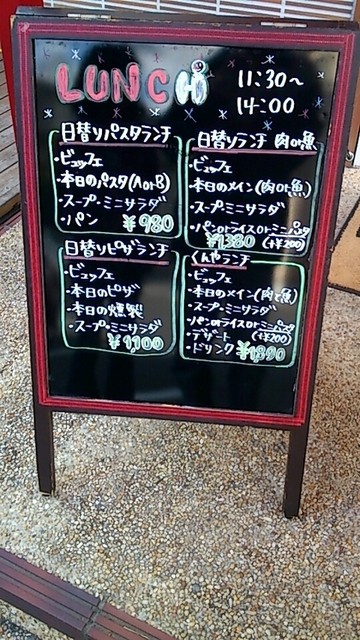 LUNCH
11:30～
14:00
日替りパスタランチ
・ビュッフェ
・本日のパスタ(AorB)
・スープ・ミニサラダ
・パン
¥980
日替りランチ 肉or魚
・ビュッフェ
・本日のメイン(肉or魚)
・スープ・ミニサラダ
・パンorライスorミニパスタ
¥1380 (+¥200)
日替りピザランチ
・ビュッフェ
・本日のピザ
・本日の燻製
・スープ・ミニサラダ
¥1,100
くんやランチ
・ビュッフェ
・本日のメイン(肉と魚)
・スープ・ミニサラダ
・パンorライスorミニパスタ
・デザート (+¥200)
・ドリンク ¥1890